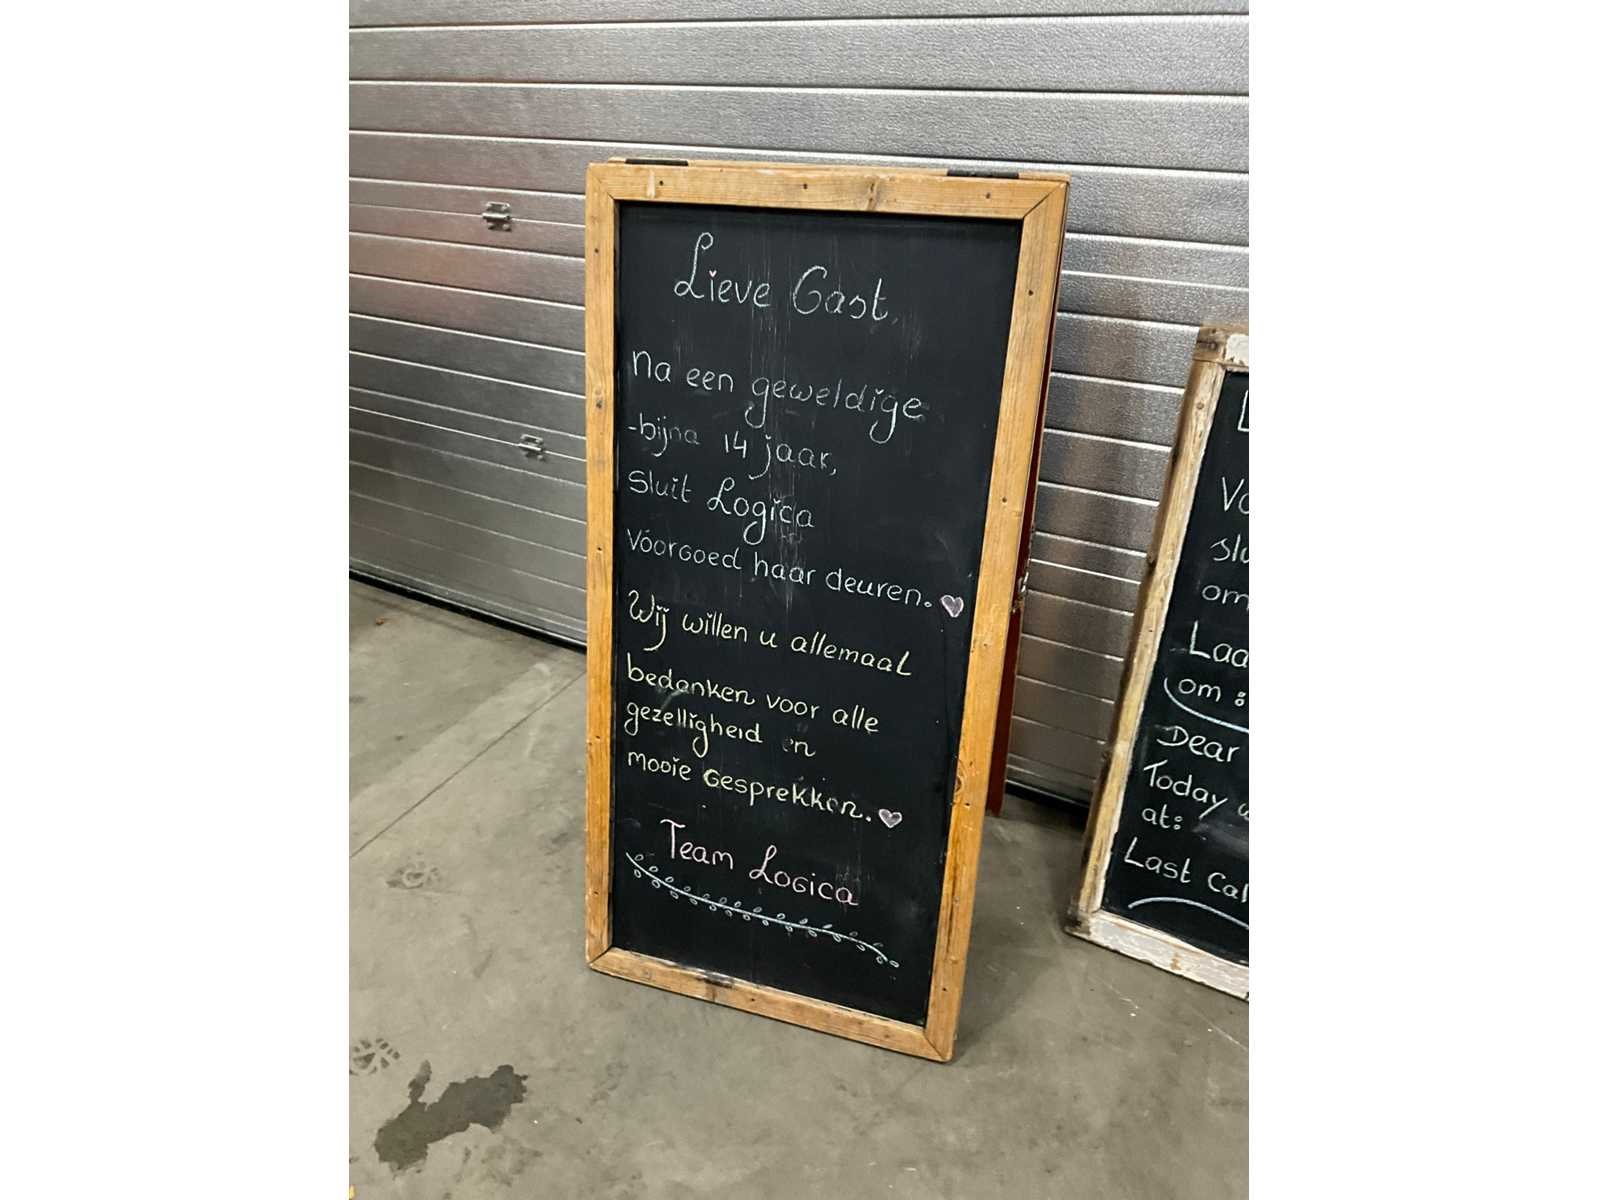 Lieve Gast,
Na een geweldige
-bijna 14 jaar,
Sluit Logica
voorgoed haar deuren.
Wij willen u allemaal
bedanken voor alle
gezelligheid en
mooie gesprekken.
Team Logica
om
om :
Dear
Today
at:
Last